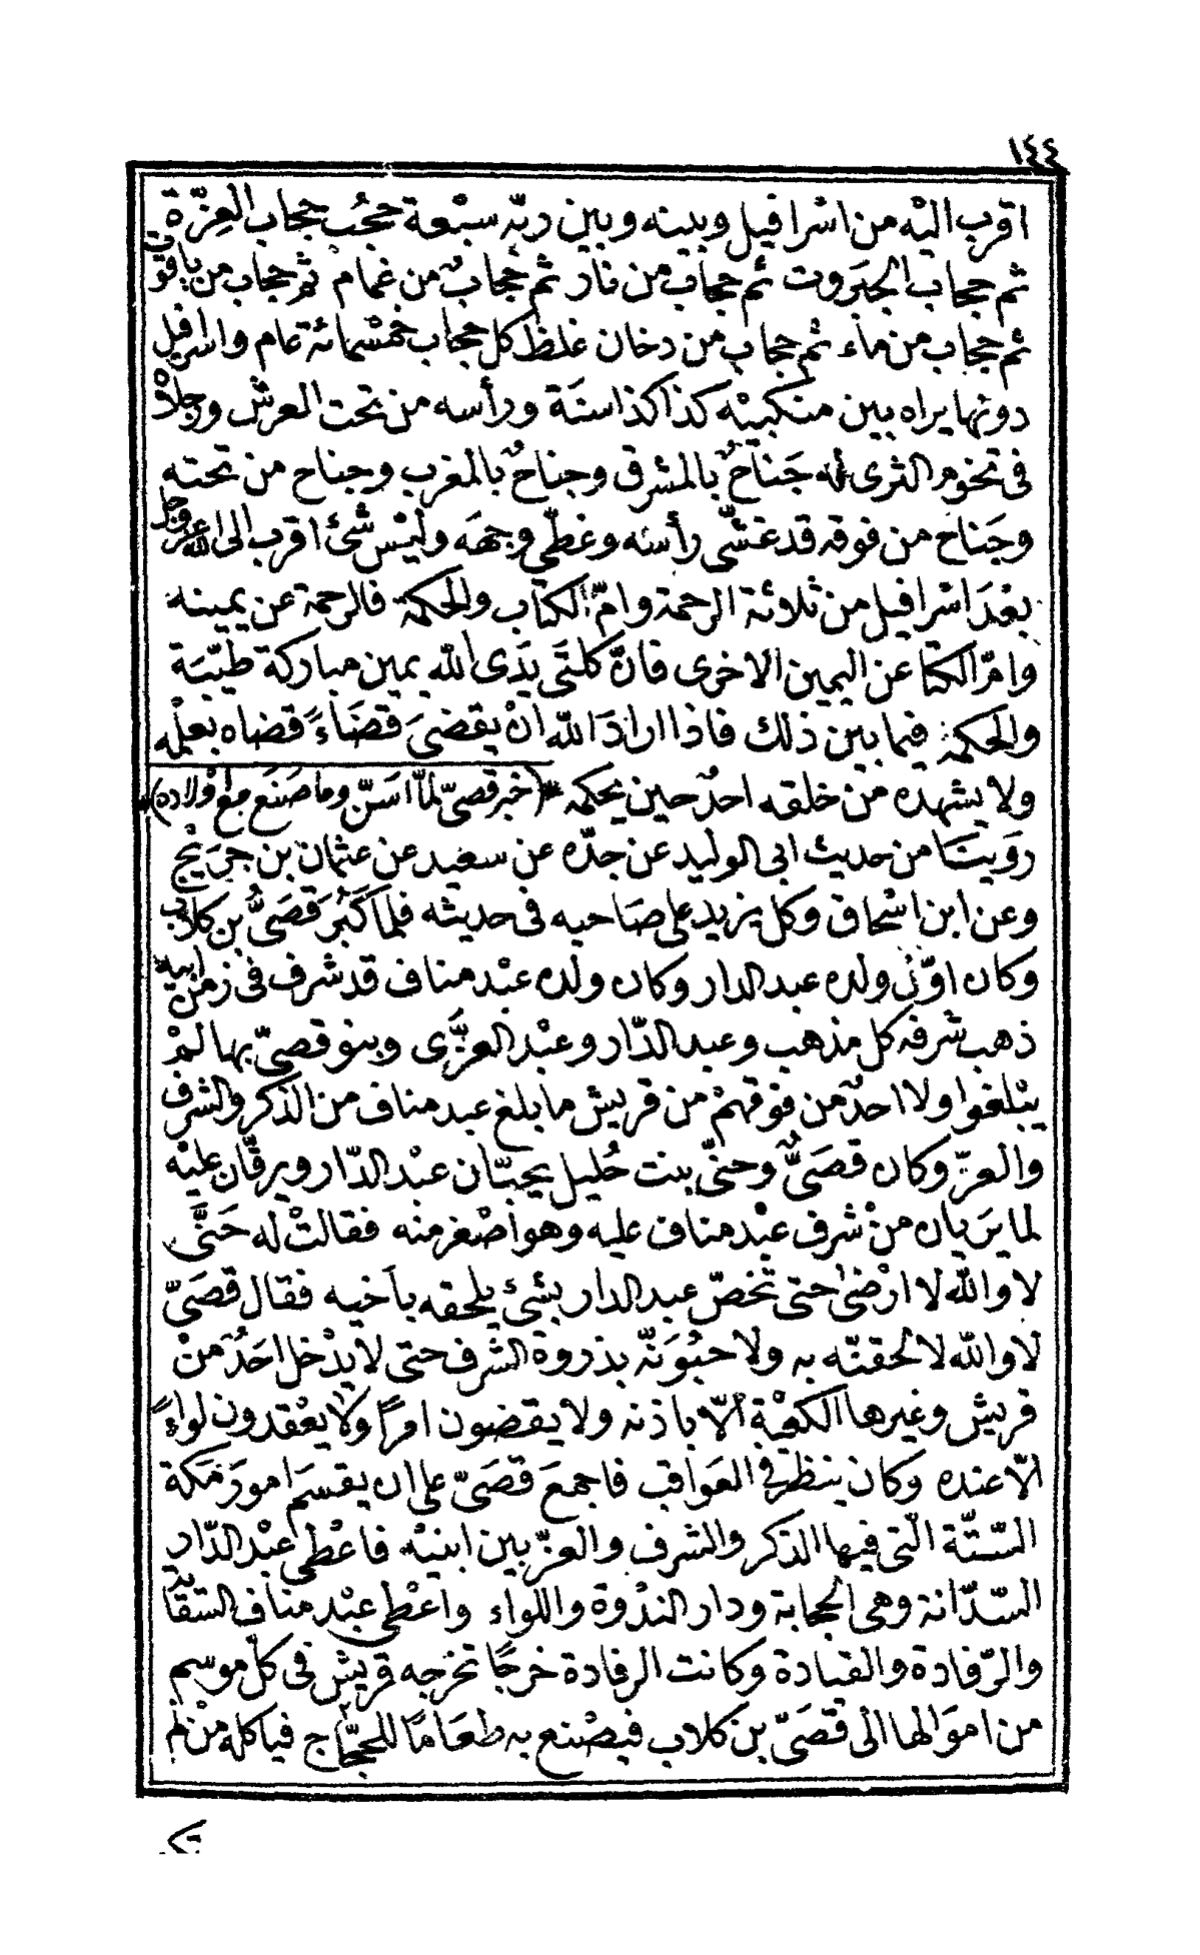 ١٤٤
اقرب اليْه من اسْرافيل وبينه وبين ربّه سبْعة حجُب حجاب العِزّة
ثم حجاب الجبَروت ثم حجاب من نار ثم حجابٌ من غمام ثم حجاب من ياقوت
ثم حجاب من ماء ثم حجاب من دخان غلظ كل حجاب خمْسمائة عام واسرافيل
دونها يراه بين منكبيْه كذا كذا سنَة ورأسه من تحت العرش ورجلاهْ
فى تخوم الثرى له جَناحٌ بالمشرق وجناحٌ بالمغرب وجناح من تحته
وجَناح من فوقه قد غشّى رأسَه وغطّى وجهَه وليْس شئ اقرب الى الله عز وجل
بعْدَ اسْرافيل من ثلاثة الرحمة وامّ الكتاب والحكمة فالرحمة عن يمينه
وامّ الكتا عن اليمين الاخرى فانّ كلتَى يدَى الله يمين مباركة طيّبَة
والحكمة فيما بين ذلك فاذا ارادَ الله انْ يقضىَ قضَاءً قضاه بعلْمه
ولا يشهده من خلقه احدٌ حين يحكمه * (خبر قصىّ لمّا اسَنّ وما صَنَع مع اوْلاده) *
روَيتَا من حديث ابى الوليد عن جدّه عن سعيد عن عثمان بن جرَيْج
وعن ابن اسْحاق وكل يزيد على صَاحبه فى حديثه فلما كَبُرَ قصَىُّ بن كلاب
وكان اوّل ولده عبد الدار وكان ولده عبْد مناف قد شرف فى زمن ابيه
ذهب شرفه كل مذهب وعبد الدّار وعبْد العزَّى وبنو قصىّ بها لمْ
يبْلغوا ولا احدٌ من فوقهمْ من قريش ما بلغ عبد مناف من الذكر والشرف
والعزّ وكان قصَىٌّ وحبّى بنت حُليل يحبّان عبْد الدّار ويرقّان عليْه
لما يرَيان منْ شرف عبْد مناف عليه وهو اصْغر منْه فقالتْ له حَبَّى
لا والله لا ارْضى حتى تخصّ عبد الدار بشئ يلحقه باَخيه فقال قصَىّ
لا والله لالحقنّه به ولاحبُوَنّه بذروة الشرف حتى لا يدْخل احَدٌ منْ
قريش وغيرها الكعْبة الّا باذنه ولا يقضون امرًا ولا يعْقدون لواءً
الّا عنده وكان ينظر فى العَواقب فاجمعَ قصَىّ على ان يقسَم امورَ مكة
السّتّة الّتى فيها الذكر والشرف والعزّ بين ابنيْه فاعْطى عبْد الدّار
السّدَانة وهى الحجابة ودار الندْوة واللواء واعْطى عبْد مناف السّقاية
والرّفادة والقيادة وكانت الرفادة خرجًا تخرجه قريش فى كلّ موسم
من اموَالها الى قصَىّ بن كلاب فيصْنع به طعَامًا للحجّاج فياكله منْ لم
تكن